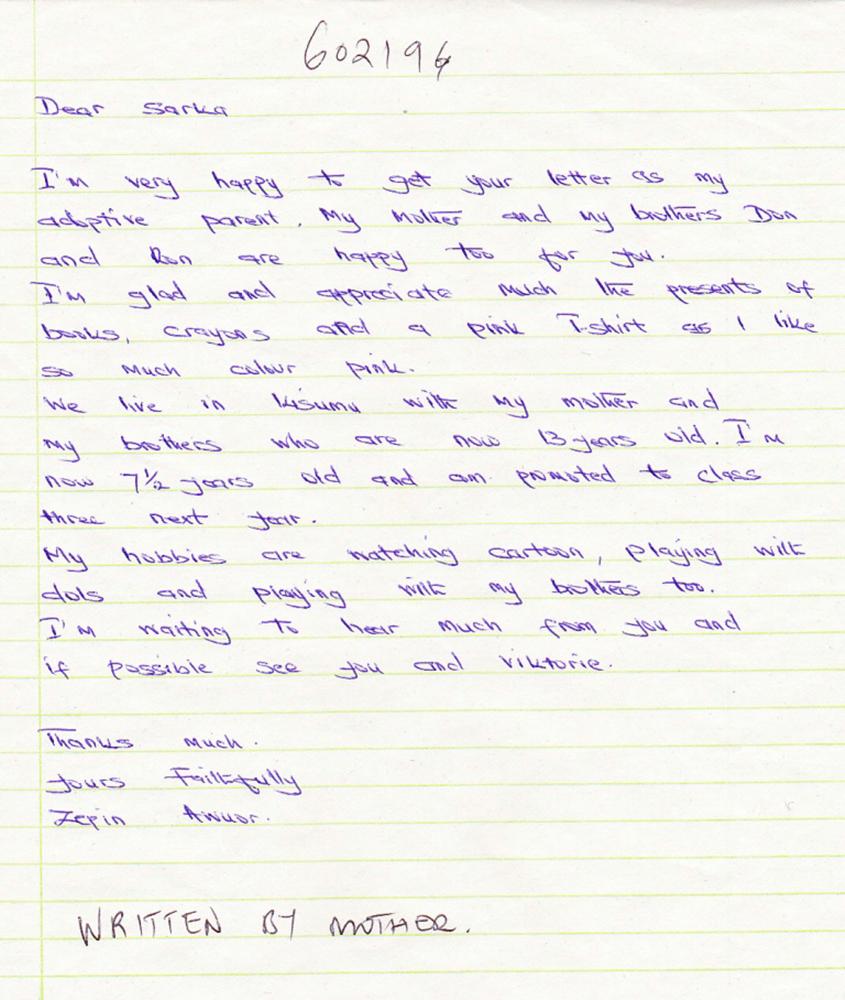 602196
Dear Sarka
I'm very happy to get your letter as my
adoptive parent. My Mother and my brothers Don
and Ron are happy too for you.
I'm glad and appreciate much the presents of
books, crayons and a pink T-shirt as I like
so much colour pink.
We live in Kisumu with my mother and
my brothers who are now 13 years old. I'm
now 7½ years old and am promoted to class
three next year.
My hobbies are watching cartoon, playing with
dols and playing with my brothers too.
I'm waiting to hear much from you and
if possible see you and Viktorie.
Thanks much.
Yours Faithfully
Zepin Awuor.
WRITTEN BY MOTHER.